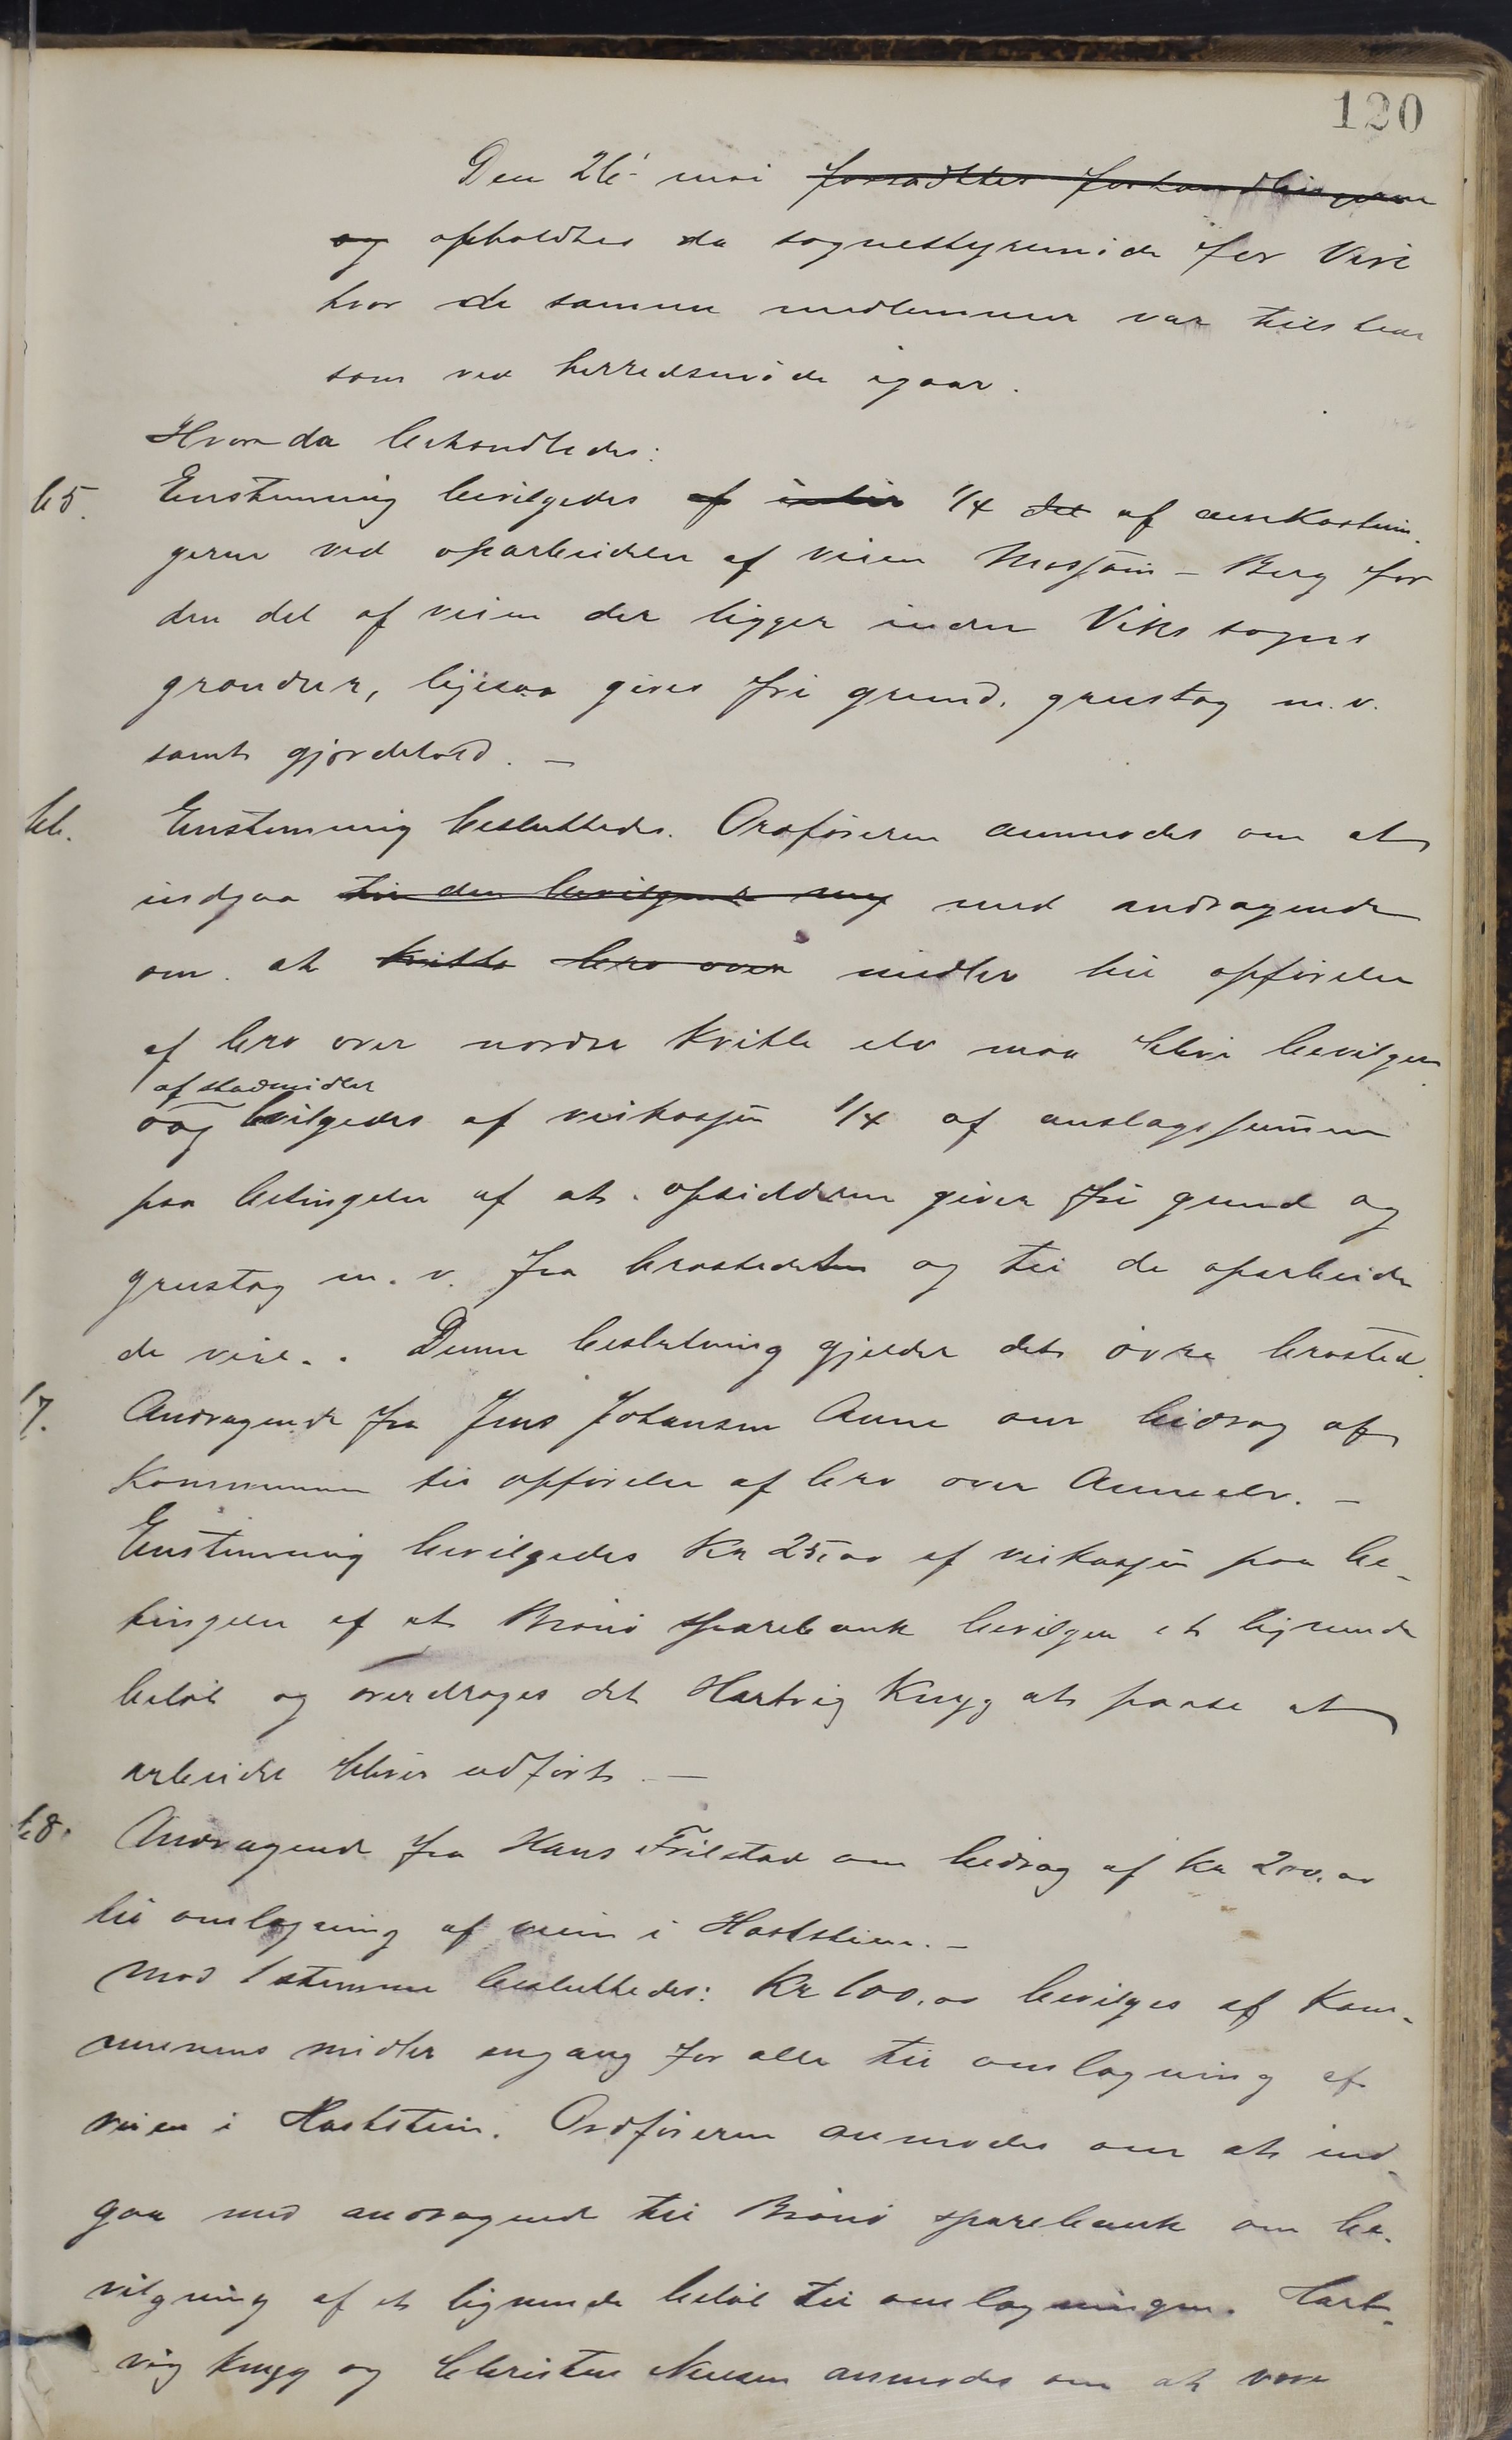 120
Den 26' mai forsattes forhandlingerne
og afholdtes da sognestyremøde for Vik
hvor de samme medlemmer var tilstede
som ved herredsmøde igaar.
Hvor da behandledes:
65. Enstemmig bevilgedes af 1/4 det af omkostnin-
gerne ved oparbeidelse af veien Mosheim - Berg for
den del af veien der ligger inden Viks sogns
grændser, ligesaa gives fri grund, grustag m.v.
samt gjerdehold. —
66. Enstemmig besluttedes. Ordføreren anmodes om at
indgaa til den bevilgende myn med andragende
om at Kvitle bro over midler til opførelse
af bro over nordre Kvitle elv maa blive bevilget
af stadmidler
og bevilgedes af veikassen 1/4 af anslagssummen
paa betingelse af at opsidderne giver fri grund og
grustag m. v. fra brostedet og til de oparbeide
de veie. Denne beslutning gjelder det øvre brosted.
67. Andragende fra Jens Johansen Aune om bidrag af
Kommunen til opførelse af bro over Auneelv. —
Enstemmig bevilgedes Kr 25,00 af veikassen paa be-
tingelse af at Brønø sparebank bevilger et lignende
beløb og overdrages det Hartvig Knygg at paase at
arbeidet bliver udført. —
68. Andragende fra Hans Trilstad om bidrag af Kr 200,00
til omlægning af veien i Hartstein. —
Mod 1 stemme besluttedes: Kr 100,00 bevilges af Kom-
munens midler engang for alle til omlægning af
veien i Hartstein. Ordføreren anmodes om at ind-
gaa med andragende til Brønø sparebank om be-
vilgning af et lignende beløb til omlægningen. Hart-
vig Knygg og Christen Nilsen anmodes om at være